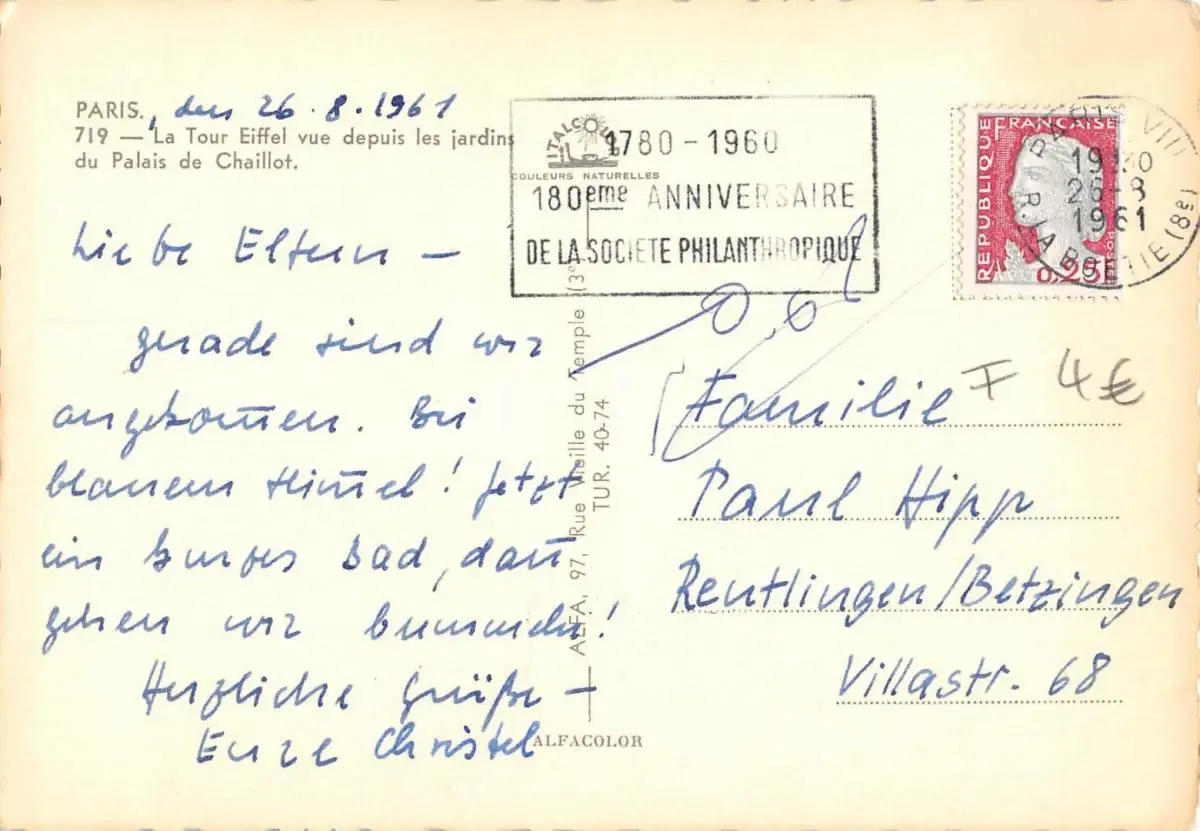 PARIS., den 26.8.1961
719 — La Tour Eiffel vue depuis les jardins
du Palais de Chaillot.
Liebe Eltern —
gerade sind wir
angekom̅en. Bei
blauem Him̅el! Jetzt
ein kurzes Bad, dan̅
gehen wir bummeln!
Herzliche Grüße —
Eure Christel
ITALCO
COULEURS NATURELLES
1780 - 1960
180eme ANNIVERSAIRE
DE LA SOCIETE PHILANTHROPIQUE
REPUBLIQUE FRANÇAISE
0,25F
POSTES
PARIS VIII
19H30
26-8
1961
R. LA BOETIE (8e)
ALFA, 97, Rue Vieille du Temple (3e)
TUR. 40-74
ALFACOLOR
F 4€
Familie
Paul Hipp
Reutlingen/Betzingen
Villastr. 68